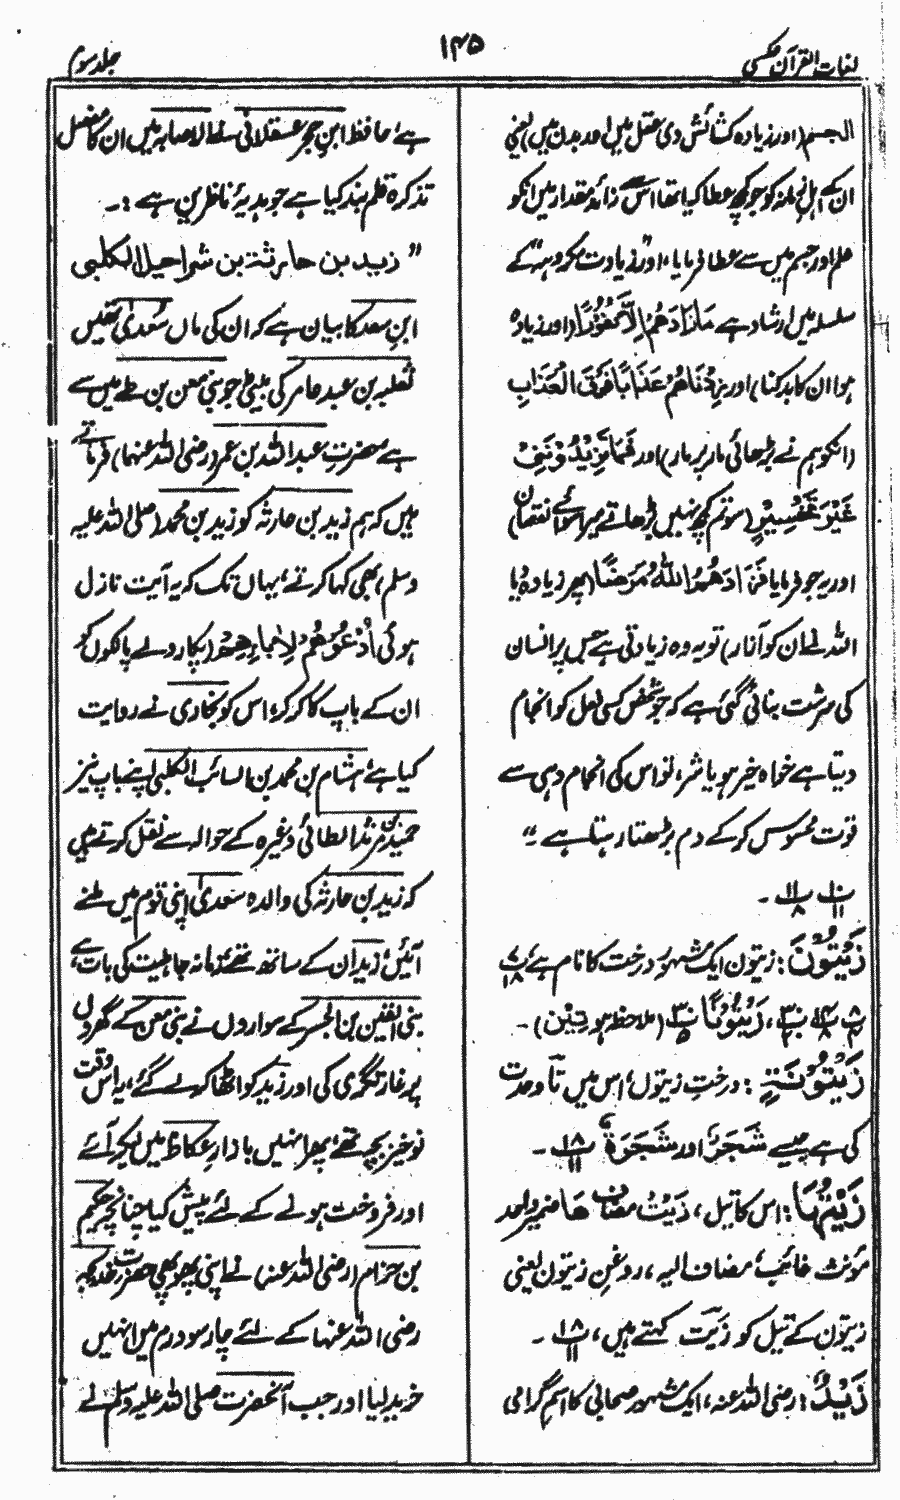 لغات القرآن عکسی
۱۴۵
جلد سوم
الجسم (اور زیادہ کشائش دی عقل میں اور بدن میں) یعنی
ان کے اہل زمانہ کو جو کچھ عطا کیا تھا اس سے زائد مقدار میں انکو
علم اور جسم میں سے عطا فرمایا، اور "زیادت مکروہہ" کے
سلسلہ میں ارشاد ہے مَا زَادَهُمْ إِلَّا نُفُوْرًا (اور زیادہ
ہوا ان کا بدکنا) اور زِدْنَاهُمْ عَذَابًا فَوْقَ الْعَذَابِ
(انکو ہم نے بڑھائی مار پر مار) اور فَمَا تَزِيْدُوْنَنِيْ
غَيْرَ تَخْسِيْرٍ (سو تم کچھ نہیں بڑھاتے میرا سوائے نقصان)
اور یہ جو فرمایا فَزَادَهُمُ اللهُ مَرَضًا (پھر زیادہ دیا
اللہ نے ان کو آزار) تو یہ وہ زیادتی ہے جس پر انسان
کی سرشت بنائی گئی ہے کہ جو شخص کسی فعل کو انجام
دیتا ہے خواہ خیر ہو یا شر، تو اس کی انجام دہی سے
قوت محسوس کر کے دم بڑھتا رہتا ہے۔"
زَيْتُوْنَ: زیتون ایک مشہور درخت کا نام ہے،
زَيْتُوْنًا (ملاحظہ ہو تِيْن)۔
زَيْتُوْنَةٍ: درختِ زیتون، اس میں تا وحدت
کی ہے جیسے شَجَرٌ اور شَجَرَةٌ
زَيْتُهَا: اس کا تیل، زَيْتُ مضاف هَا ضمیر واحد
مؤنث غائب، مضاف الیہ، روغن زیتون یعنی
زیتون کے تیل کو زیت کہتے ہیں،
زَيْدٌ: رضی اللہ عنہ، ایک مشہور صحابی کا اسم گرامی
ہے، حافظ ابن حجر عسقلانی نے الاصابہ میں ان کا مفصل
تذکرہ قلم بند کیا ہے جو ہدیۂ ناظرین ہے :۔
"زید بن حارثۃ بن شراحیل الکلبی
ابن سعد کا بیان ہے کہ ان کی ماں سُعدیٰ تھیں
ثعلبہ بن عبد عامر کی بیٹی جو بنی معن بن طے میں سے
ہے حضرت عبد اللہ بن عمر (رضی اللہ عنہما) فرماتے
ہیں کہ ہم زید بن حارثہ کو زید بن محمد (صلی اللہ علیہ
وسلم) ہی کہا کرتے تھے، یہاں تک کہ یہ آیت نازل
ہوئی أُدْعُوْهُمْ لِاٰبَائِهِمْ (پکارو لے پالکوں کو
ان کے باپ کا کر کر، اس کو بخاری نے روایت
کیا ہے، ہشام بن محمد بن السائب الکلبی اپنے باپ نیز
حمید بن مرثد الطائی وغیرہ کے حوالہ سے نقل کرتے ہیں
کہ زید بن حارثہ کی والدہ سعدیٰ اپنی قوم میں ملنے
آئیں، زید ان کے ساتھ تھے، زمانہ جاہلیت کی بات ہے،
بنی القین بن الجسر کے سواروں نے بنی معن کے گھروں
پر غارتگری کی اور زید کو اٹھا کر لے گئے، یہ اس وقت
نوخیز بچے تھے، پھر انہیں بازار عکاظ میں لیکر آئے
اور فروخت ہونے کے لئے پیش کیا چنانچہ حکیم
بن حزام (رضی اللہ عنہ) نے اپنی پھوپھی حضرت خدیجہ
رضی اللہ عنہا کے لئے چار سو درم میں انہیں
خرید لیا اور جب آنحضرت صلی اللہ علیہ وسلم نے